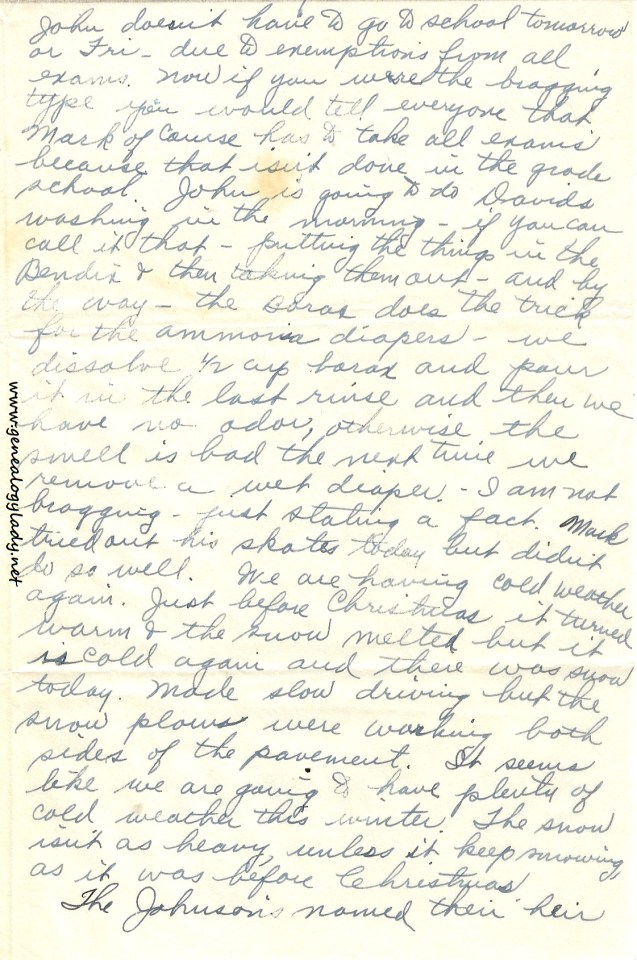 John doesn't have to go to school tomorrow
or Fri - due to exemptions from all
exams. Now if you were the bragging
type you would tell everyone that
Mark of course has to take all exams
because that isn't done in the grade
school. John is going to do Davids
washing in the morning - if you can
call it that - putting the things in the
Bendix & then taking them out - and by
the way - the borax does the trick
for the ammonia diapers - we
dissolve 1/2 cup borax and pour
it in the last rinse and then we
have no odor, otherwise the
smell is bad the next time we
remove a wet diaper. - I am not
bragging - just stating a fact. Mark
tried out his skates today but didn't
do so well. We are having cold weather
again. Just before Christmas it turned
warm & the snow melted but it
is cold again and there was snow
today. Made slow driving but the
snow plows were working both
sides of the pavement. It seems
like we are going to have plenty of
cold weather this winter. The snow
isn't as heavy, unless it keep snowing,
as it was before Christmas
The Johnson's named their heir
www.genealogylady.net